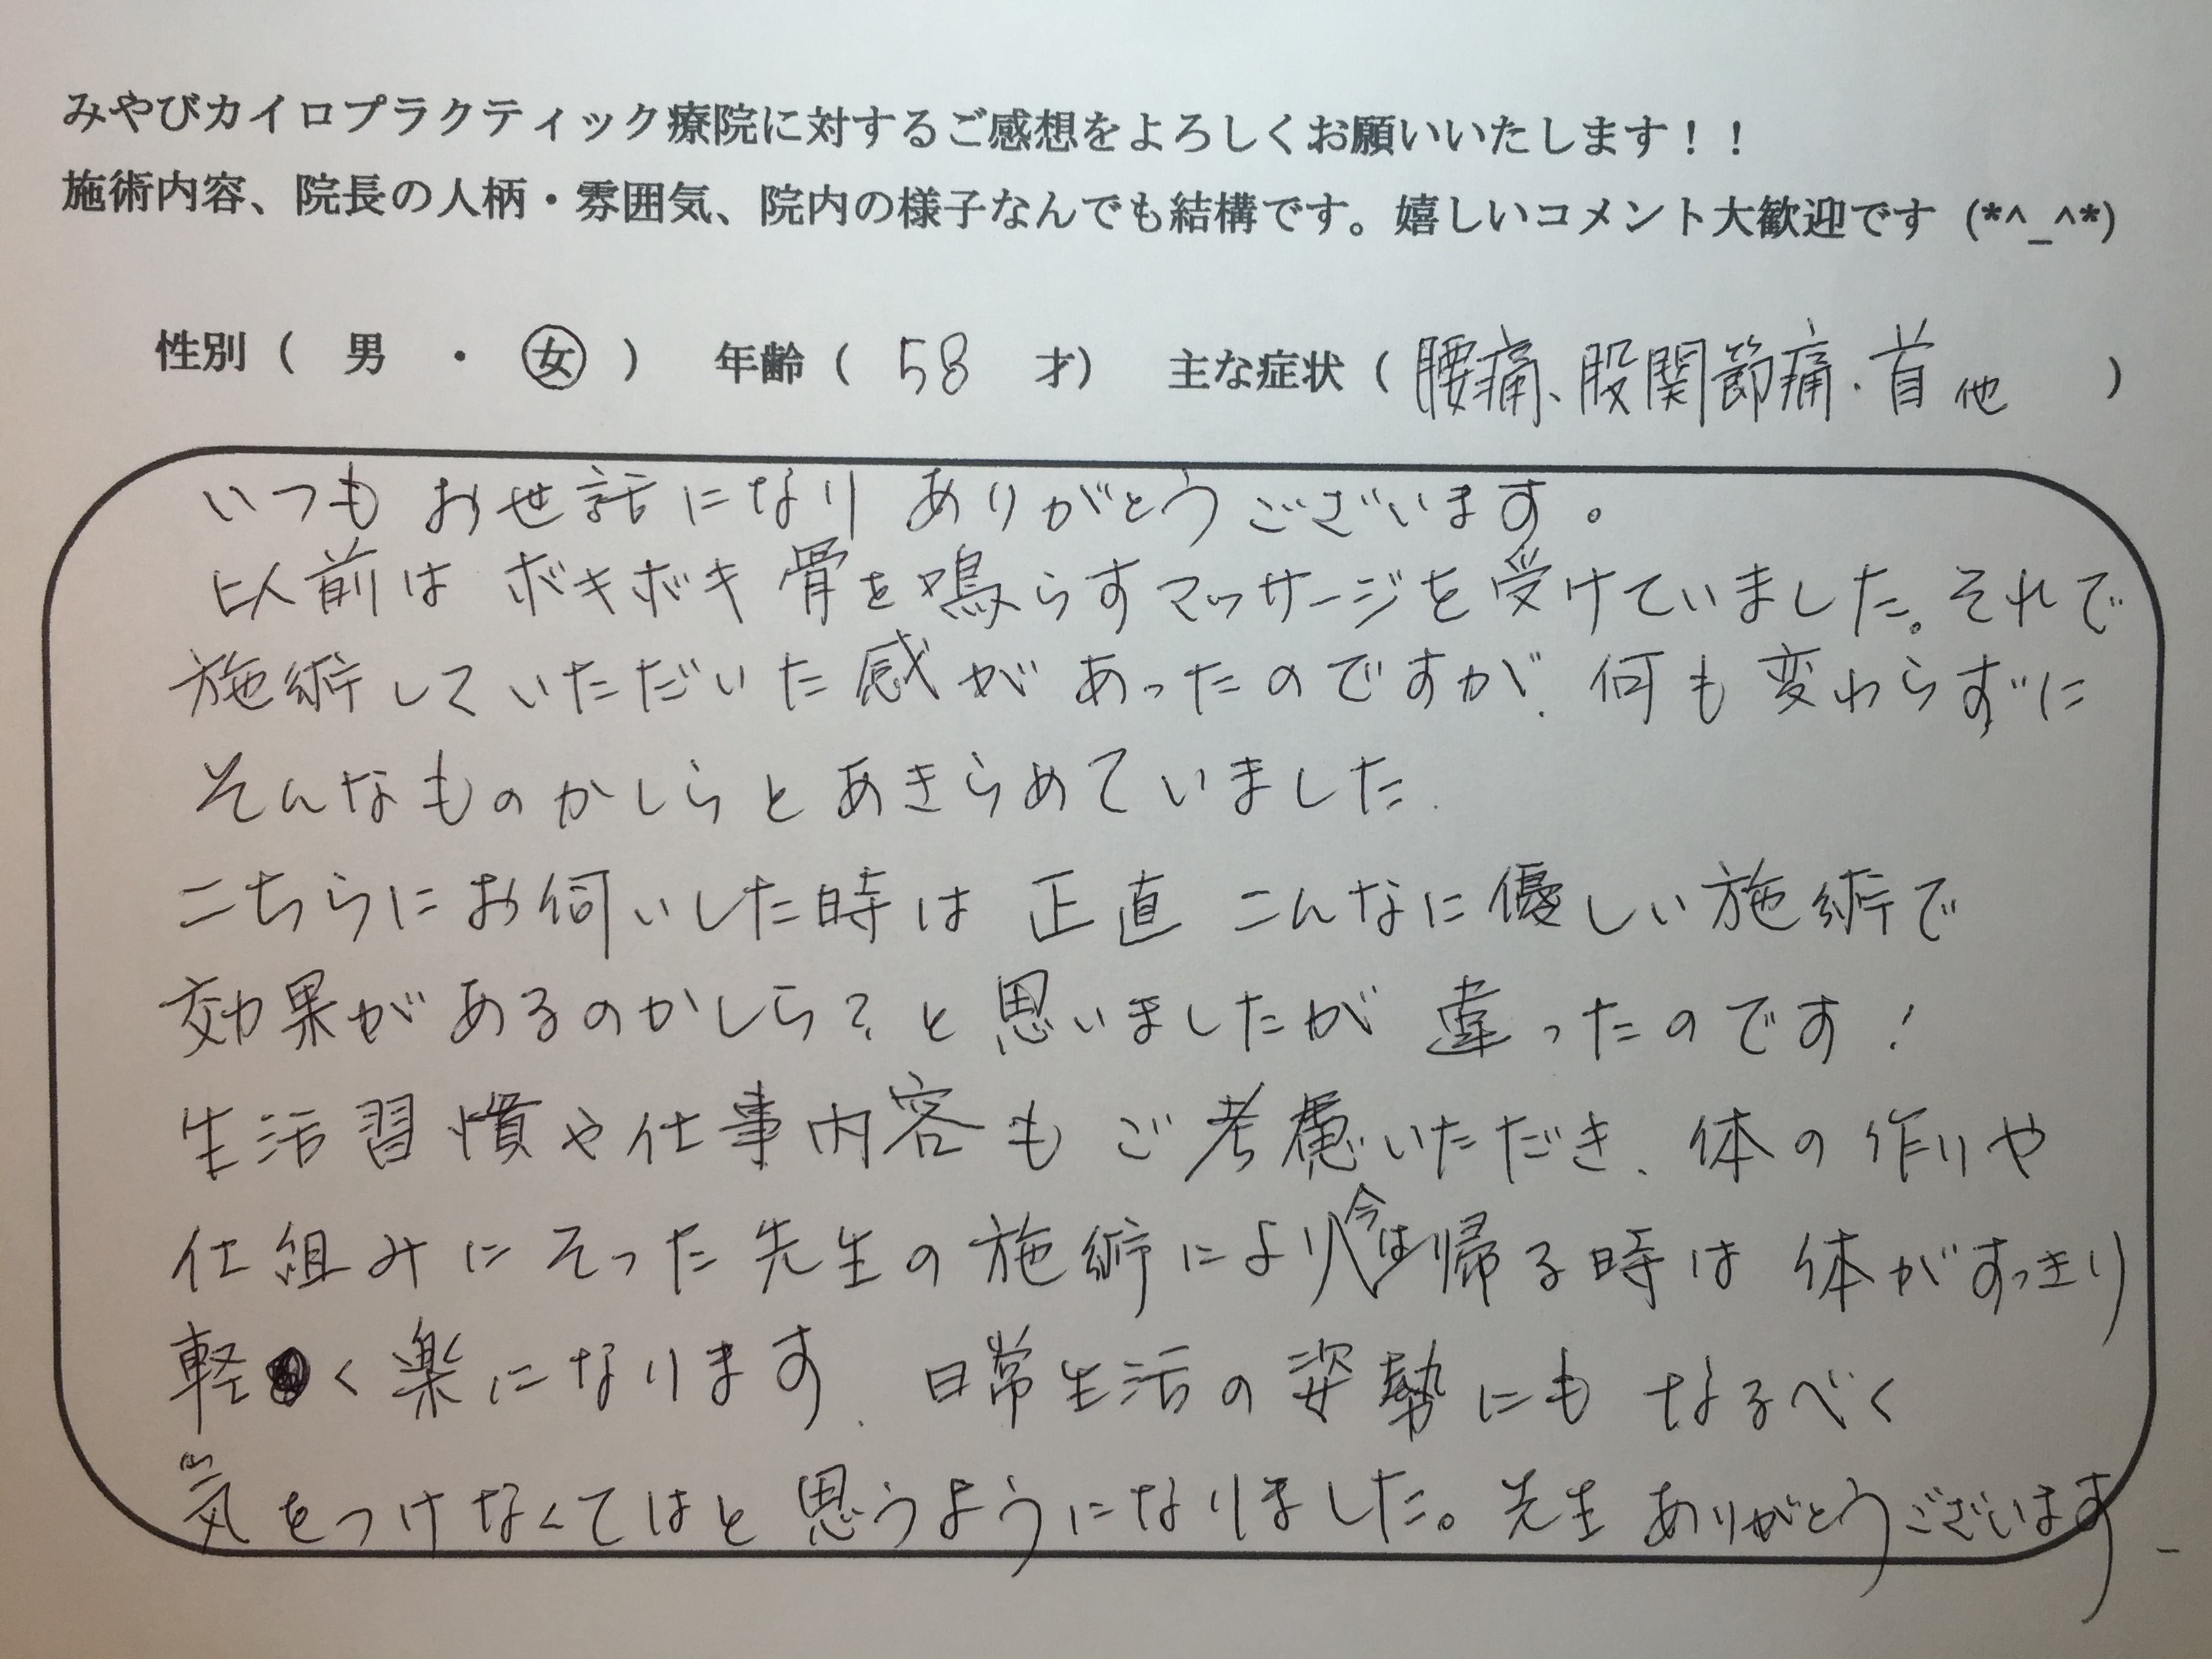 みやびカイロプラクティック療院に対するご感想をよろしくお願いいたします！！
施術内容、院長の人柄・雰囲気、院内の様子なんでも結構です。嬉しいコメント大歓迎です (*^_^*)
性別（ 男 ・ 女 ） 年齢（ 58 才） 主な症状（ 腰痛、股関節痛・首 他 ）
いつも お世話になり ありがとうございます。
以前は ボキボキ 骨を鳴らすマッサージを受けていました。それで
施術していただいた感が あったのですが、何も変わらずに
そんなものかしらとあきらめていました.
こちらにお伺いした時は 正直 こんなに優しい施術で
効果があるのかしら？と思いましたが 違ったのです！
生活習慣や仕事内容も ご考慮いただき、体の作りや
仕組みにそった先生の施術により今は帰る時は 体がすっきり
軽く楽になります. 日常生活の姿勢にも なるべく
気をつけなくてはと思うようになりました。先生 ありがとうございます